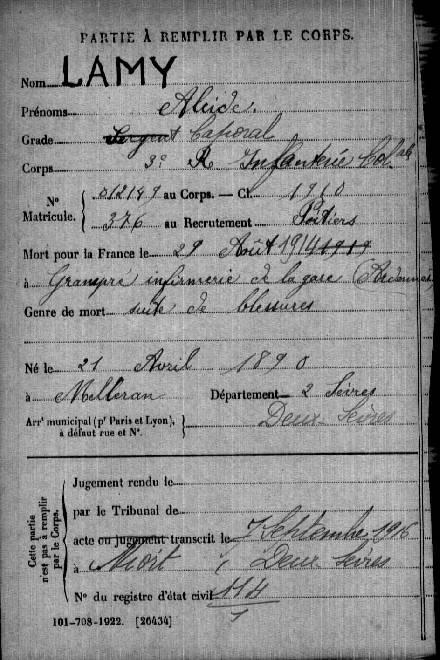 PARTIE À REMPLIR PAR LE CORPS.
Nom LAMY
Prénoms Alcide.
Grade Sergent Caporal
Corps 3e R Infanterie Colale
N° Matricule. 012197 au Corps. — Cl. 1910
376 au Recrutement Poitiers
Mort pour la France le 29 Août 1914 1919
à Granpré infirmerie de la gare (Ardennes)
Genre de mort suite de blessures
Né le 21 Avril 1890
à Melleran Département 2 Sèvres
Arrt municipal (pr Paris et Lyon), à défaut rue et N°. Deux Sèvres
Cette partie n'est pas à remplir par le Corps.
Jugement rendu le
par le Tribunal de
acte ou jugement transcrit le 7 Septembre 1916
à Niort, Deux Sèvres
N° du registre d'état civil 114
101-708-1922. [26434]